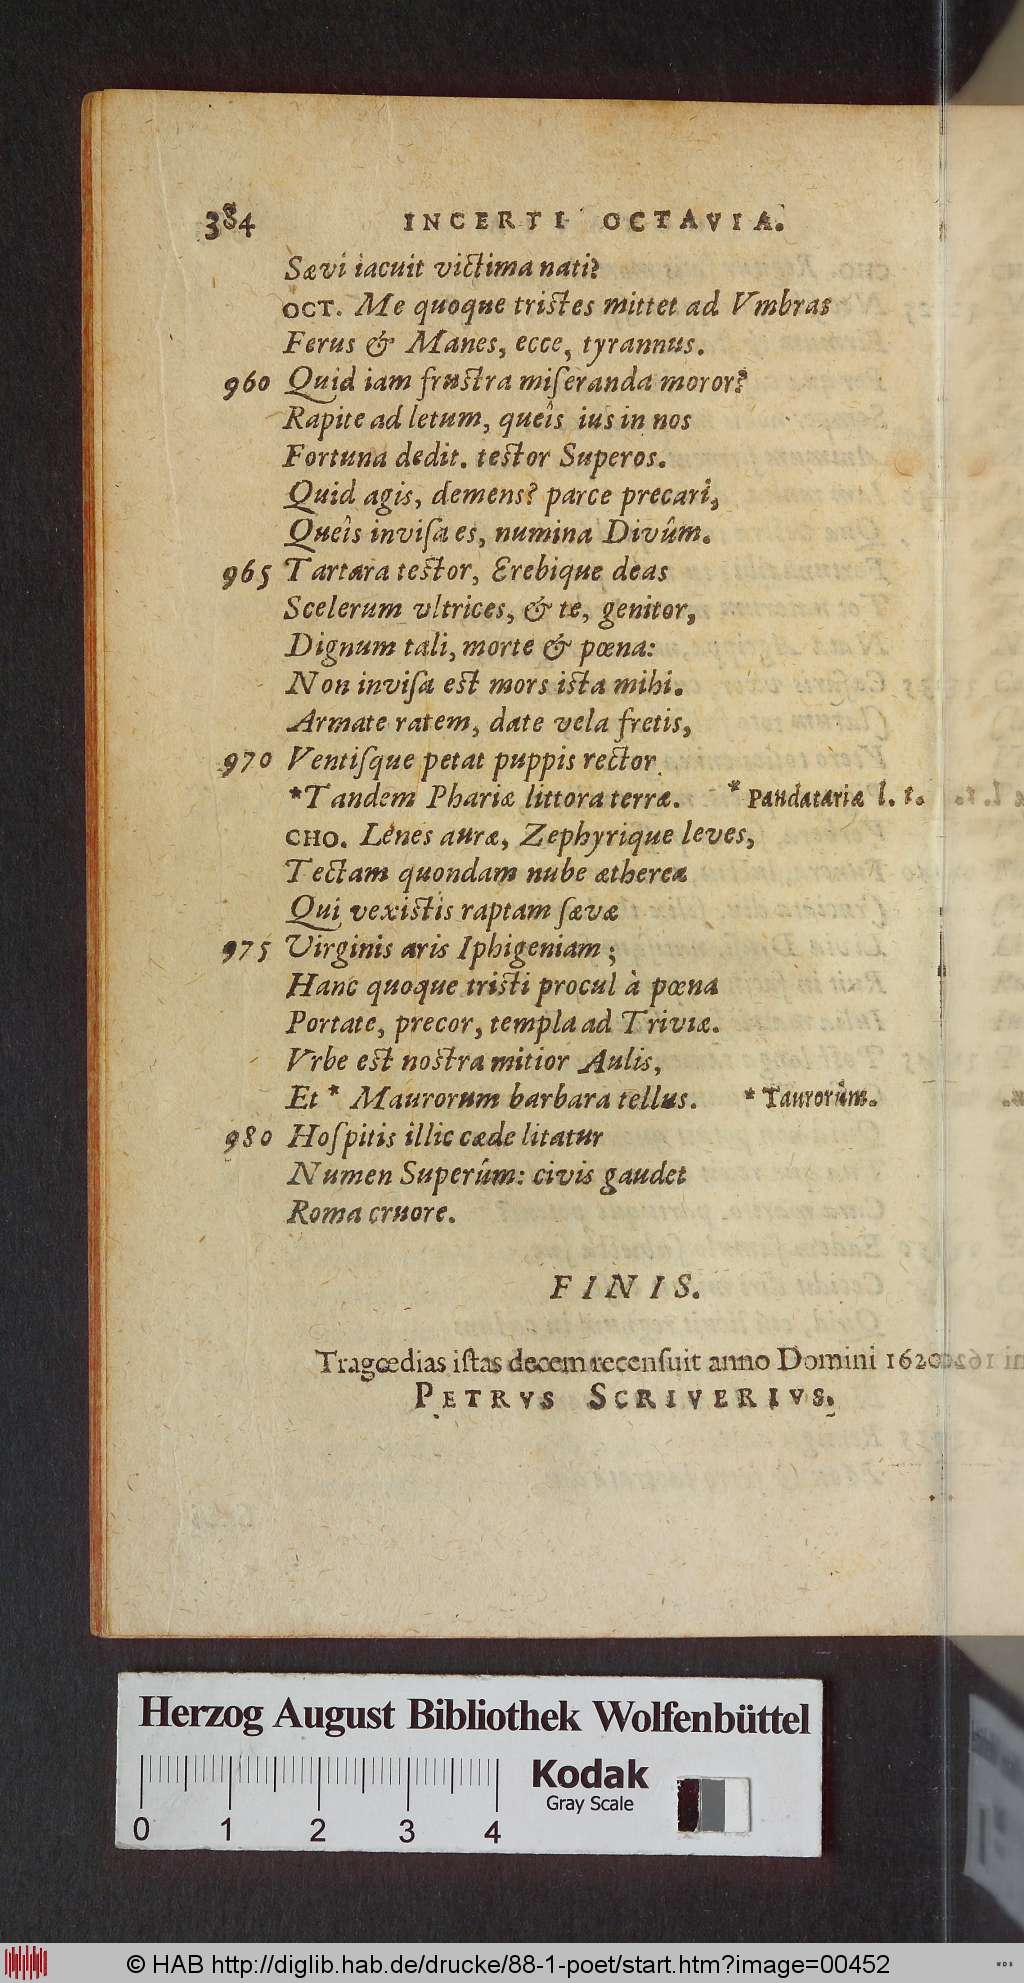 384 INCERTI OCTAVIA.
Sævi iacuit victima nati?
OCT. Me quoque tristes mittet ad Vmbras
Ferus & Manes, ecce, tyrannus.
960 Quid iam frustra miſeranda moror?
Rapite ad letum, queîs ius in nos
Fortuna dedit. testor Superos.
Quid agis, demens? parce precari,
Queîs inviſa es, numina Divûm.
965 Tartara testor, Erebique deas
Scelerum vltrices, & te, genitor,
Dignum tali, morte & pœna:
Non inviſa est mors ista mihi.
Armate ratem, date vela fretis,
970 Ventiſque petat puppis rector
*Tandem Phariæ littora terræ. * Pandatariæ l. t.
CHO. Lenes auræ, Zephyrique leves,
Tectam quondam nube æthereæ
Qui vexistis raptam ſævæ
975 Virginis aris Iphigeniam;
Hanc quoque tristi procul à pœna
Portate, precor, templa ad Triviæ.
Vrbe est nostra mitior Aulis,
Et * Maurorum barbara tellus. * Taurorûm.
980 Hoſpitis illic cæde litatur
Numen Superûm: civis gaudet
Roma cruore.
FINIS.
Tragœdias iſtas decem recenſuit anno Domini 1620
PETRVS SCRIVERIVS.
Herzog August Bibliothek Wolfenbüttel
Kodak
Gray Scale
0 1 2 3 4
© HAB http://diglib.hab.de/drucke/88-1-poet/start.htm?image=00452